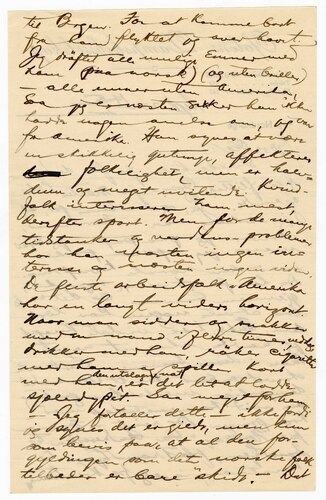 til Bogen. For at komme bort
fra ham flyktet og svær
Jeg drøftet all mulige Emner med
ham (paa norsk) (og uten Briller)
— alle unntagen Amerika,
Saa jeg er næsten sikker han ikke
hadde nogen anelse om, jeg var
fra Amerika. Han synes at være
en skikkelig gutunge, affekteres
folkelighet, men er hal-
dum og meget uvitende. Kvind-
folk interesserer ham mest,
derefter sport. Men for de mange
tidstanker og verdens-problemer
har han næsten ingen in-
teresse og næsten ingen viden.
De fleste arbeidsfolk i Amerika
har en langt videre horizont.
Naar man sidder og snakker
med en mand i flere timer, og
drikker med ham, røker cigaretter
med ham og spiller kort
med ham, er det let at lodde
Saa meget for ham.
Jeg fortæller dette, ikke fordi
jeg synes det er gjevt, men kun
som bevis paa at al den for-
gyldningen som det norske folk
tilbeder er bare "skidt". — Det